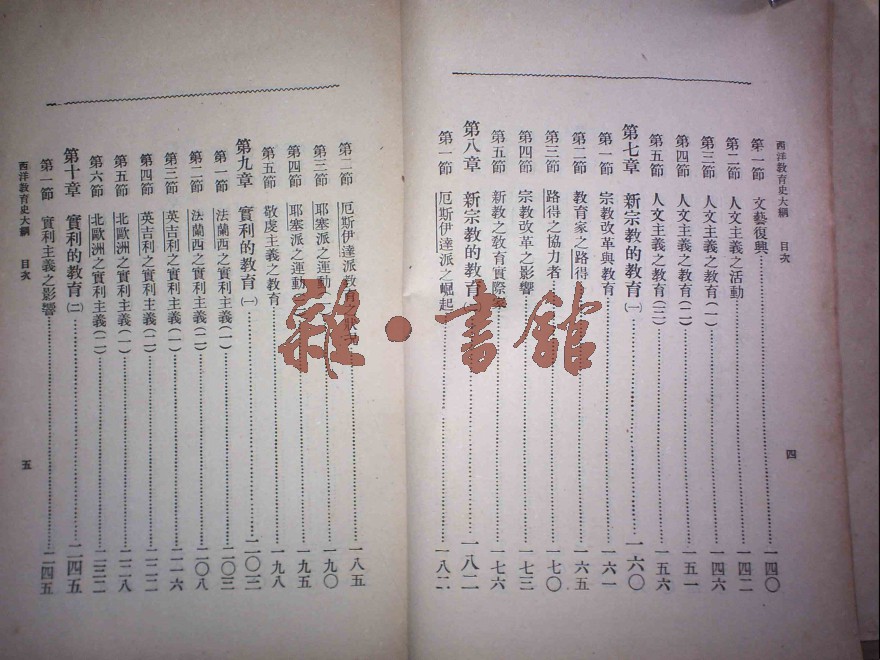 西洋教育史大綱　目次
第一節　文藝復興……一四〇
第二節　人文主義之活動……一四二
第三節　人文主義之教育(一)……一四六
第四節　人文主義之教育(二)……一五一
第五節　人文主義之教育(三)……一五六
第七章　新宗教的教育(一)……一六〇
第一節　宗教改革與教育……一六一
第二節　教育家之路得……一六五
第三節　路得之協力者……一七〇
第四節　宗教改革之影響
第五節　新教之教育實際……一七六
第八章　新宗教的教育……一八二
第一節　厄斯伊達派之崛起……一八二
四
第二節　厄斯伊達派教育之……一八五
第三節　耶塞派之運動……一九〇
第四節　耶塞派之運動……一九五
第五節　敬虔主義之教育……一九八
第九章　實利的教育(一)……二〇三
第一節　法蘭西之實利主義(一)……二〇三
第二節　法蘭西之實利主義(二)……二〇八
第三節　英吉利之實利主義(一)……二一六
第四節　英吉利之實利主義(二)……二二二
第五節　北歐洲之實利主義(一)……二二八
第六節　北歐洲之實利主義(二)……二三二
第十章　實利的教育(二)……二四五
第一節　實利主義之影響……二四五
西洋教育史大綱　目次
五
雜·書館